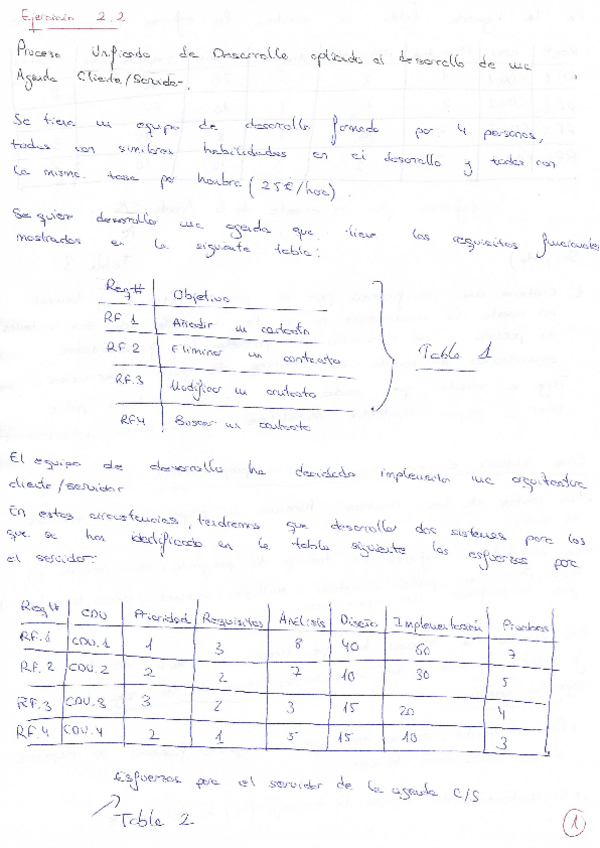 Ejercicio 2.2
Proceso Unificado de Desarrollo aplicado al desarrollo de una
Agenda Cliente/Servidor.
Se tiene un equipo de desarrollo formado por 4 personas,
todas con similares habilidades en el desarrollo y todas con
la misma tasa por hombre (25€/hora).
Se quiere desarrollar una agenda que tiene los requisitos funcionales
mostrados en la siguiente tabla:
Req# Objetivo
RF.1 Añadir un contacto
RF.2 Eliminar un contacto
RF.3 Modificar un contacto
RF4 Buscar un contacto
Tabla 1
El equipo de desarrollo ha decidido implementar una arquitectura
cliente/servidor
En estas circunstancias, tendremos que desarrollar dos sistemas para los
que se han identificado en la tabla siguiente los esfuerzos para
el servidor:
Req# CDU Prioridad Requisitos Análisis Diseño Implementación Pruebas
RF.1 CDU.1 1 3 8 40 60 7
RF.2 CDU.2 2 2 7 10 30 5
RF.3 CDU.3 3 2 3 15 20 4
RF.4 CDU.4 2 1 5 15 10 3
Esfuerzos para el servidor de la agenda C/S
Tabla 2
1